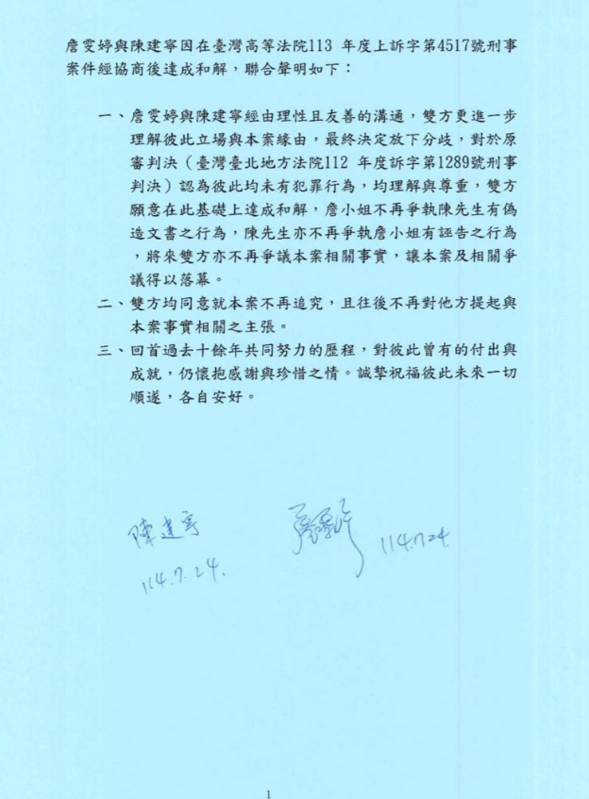 詹雯婷與陳建寧因在臺灣高等法院113 年度上訴字第4517號刑事
案件經協商後達成和解，聯合聲明如下：
一、詹雯婷與陳建寧經由理性且友善的溝通，雙方更進一步
理解彼此立場與本案緣由，最終決定放下分歧，對於原
審判決（臺灣臺北地方法院112 年度訴字第1289號刑事
判決）認為彼此均未有犯罪行為，均理解與尊重，雙方
願意在此基礎上達成和解，詹小姐不再爭執陳先生有偽
造文書之行為，陳先生亦不再爭執詹小姐有誣告之行為
，將來雙方亦不再爭議本案相關事實，讓本案及相關爭
議得以落幕。
二、雙方均同意就本案不再追究，且往後不再對他方提起與
本案事實相關之主張。
三、回首過去十餘年共同努力的歷程，對彼此曾有的付出與
成就，仍懷抱感謝與珍惜之情。誠摯祝福彼此未來一切
順遂，各自安好。
陳建寧
114.7.24.
詹雯婷
114.7.24.
1